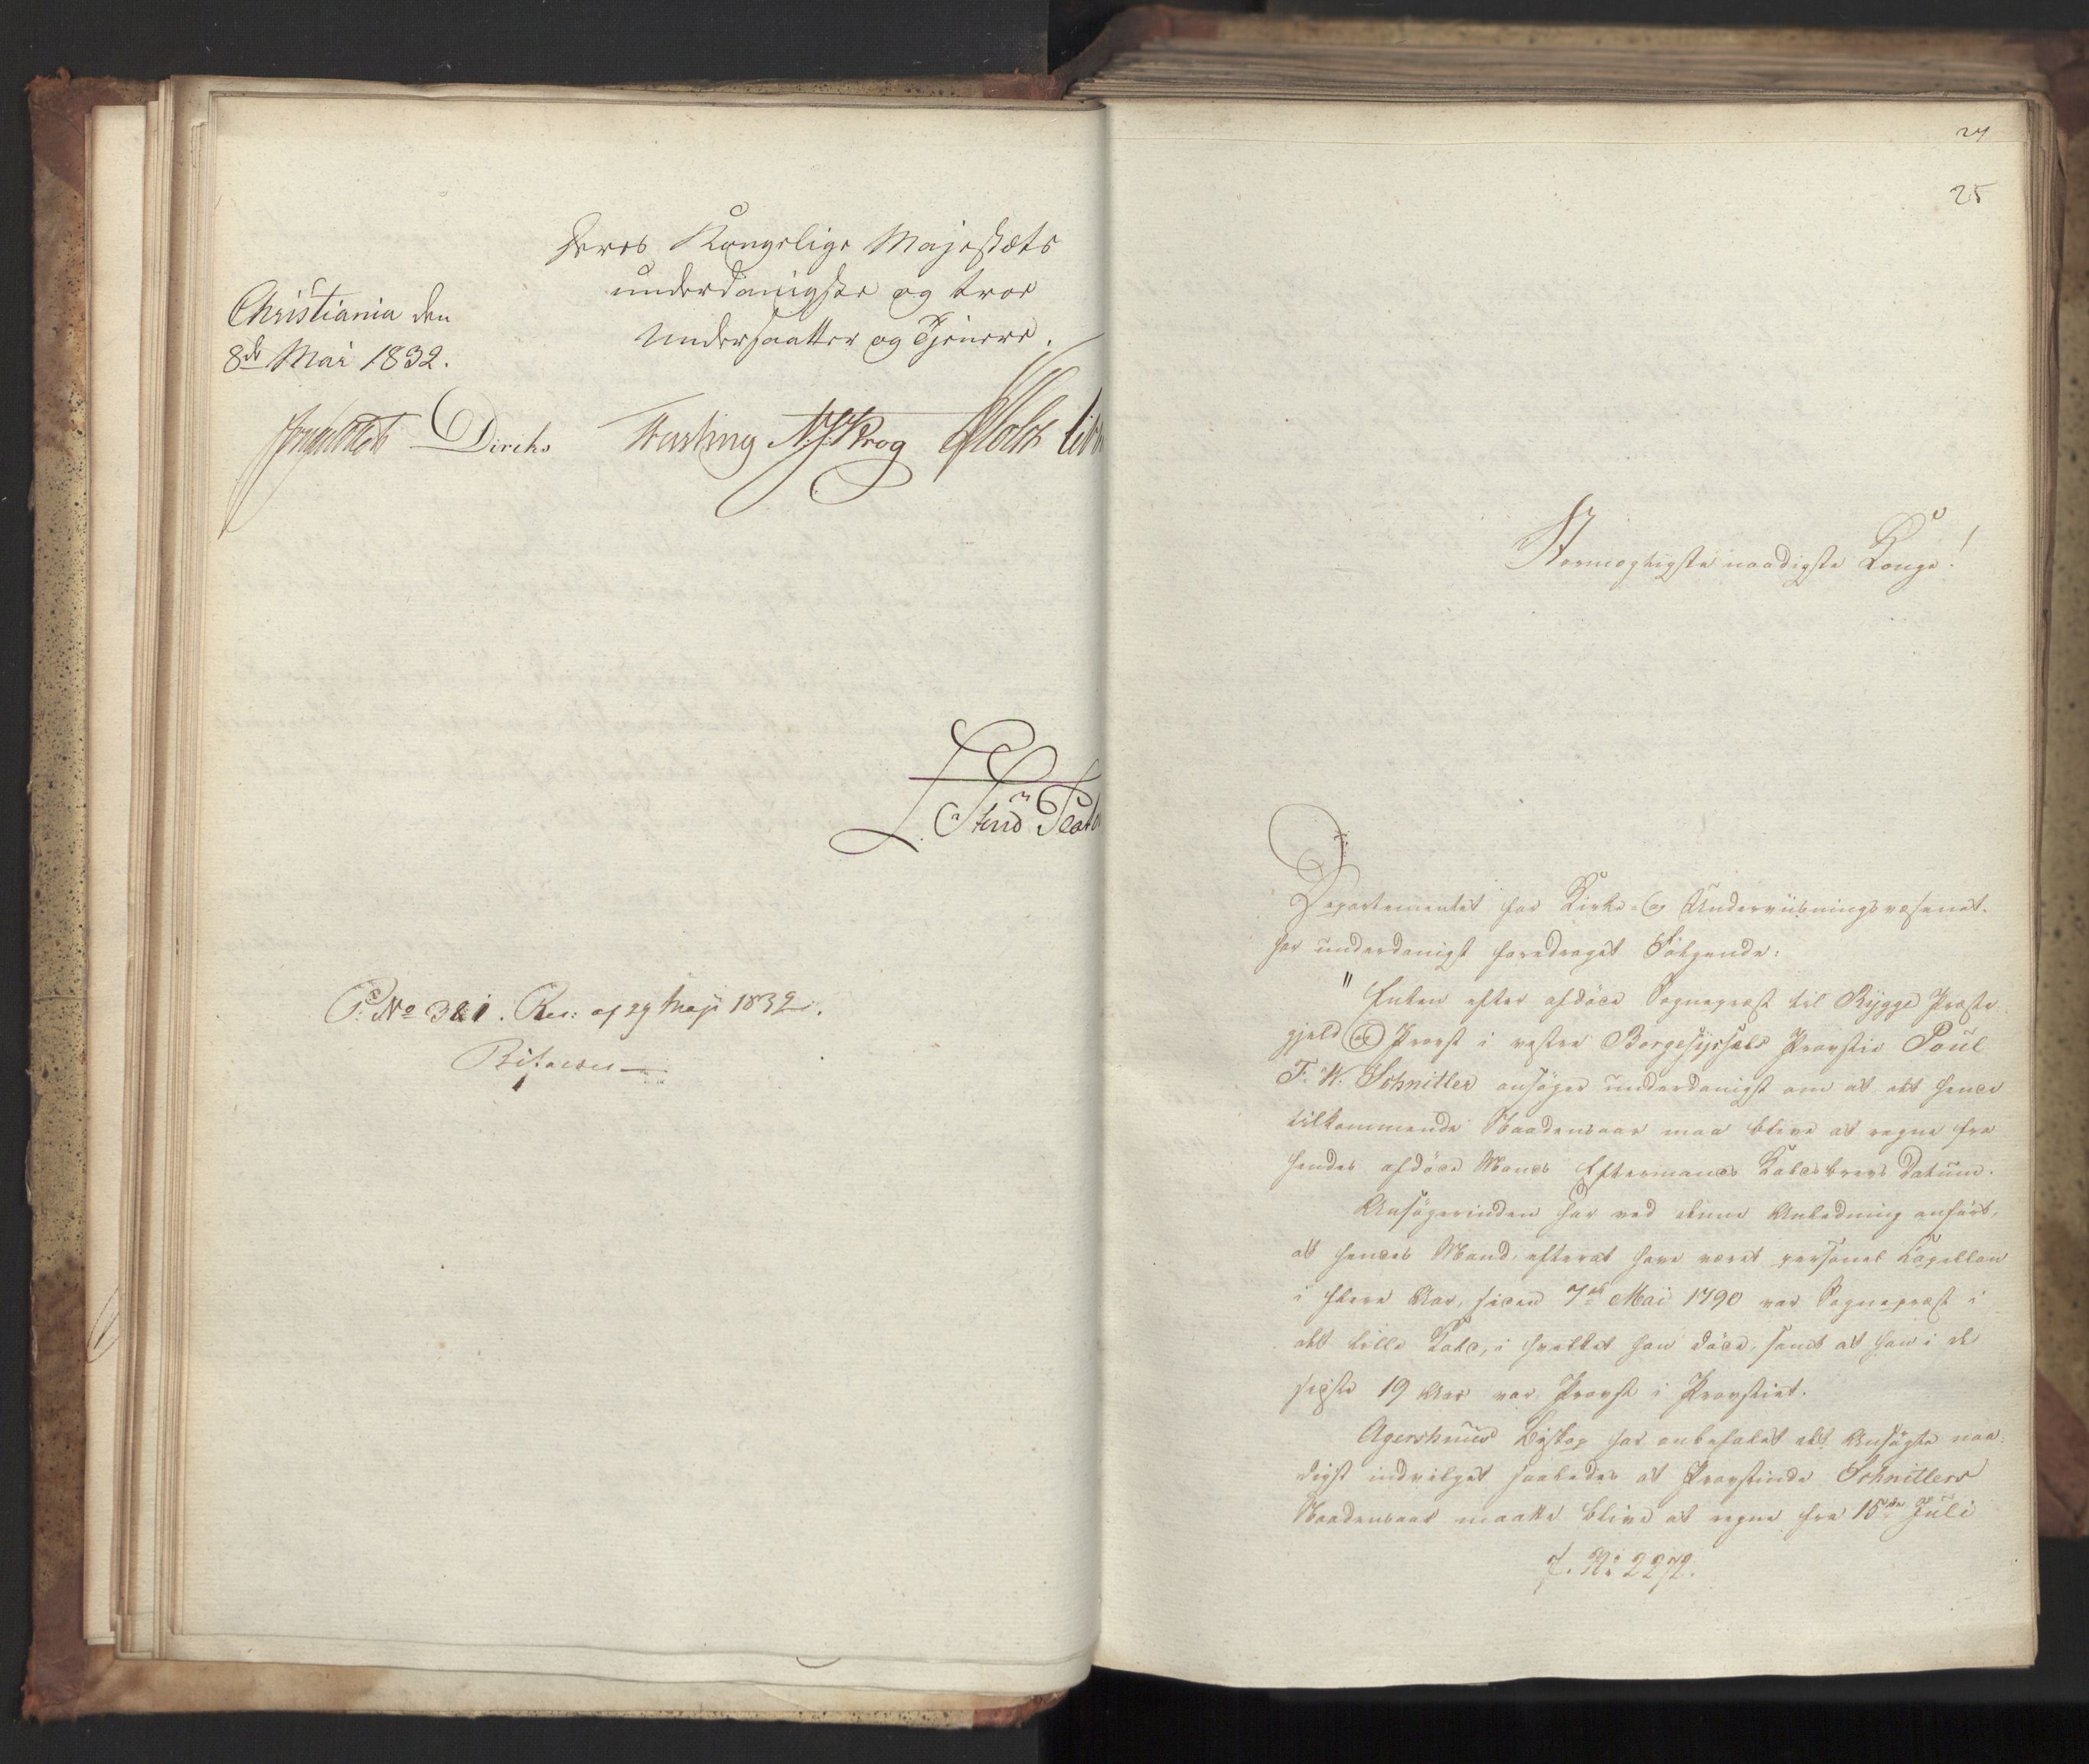 Deres Kongelige Majestæts
underdanigste og troe
Undersaatter og Tjenere.
Christiania den
8de Mai 1832.
Diriks N. J. Krog Holst
P: No 321. Res: af 29 Maji 1832.
Bifaldes
27
25
Stormægtigste naadigste Konge!
Departementet for Kirke- og Underviisningsvæsenet
har underdanigst foredraget Følgende:
"Enken efter afdøde Sognepræst til Rygge Præste-
gjeld og Provst i vestre Borgesyssels Provstie Poul
F. W. Schnitler ansøger underdanigst om at det hende
tilkommende Naadensaar maa blive at regne fra
hendes afdøde Mands Eftermands Kaldsbrevs Datum.
Ansøgerinden har ved denne Anledning anført,
at hendes Mand, efterat have været personel Kapellan
i flere Aar, siden 7de Mai 1790 var Sognepræst i
det lille Kald, i hvilket han døde, samt at han i de
sidste 19 Aar var Provst i Provstiet.
Agershuus Biskop har anbefalet det Ansøgte naa-
digst indvilget saaledes at Provstinde Schnitlers
Naadensaar maatte blive at regne fra 15de Juli
J. No 2272.